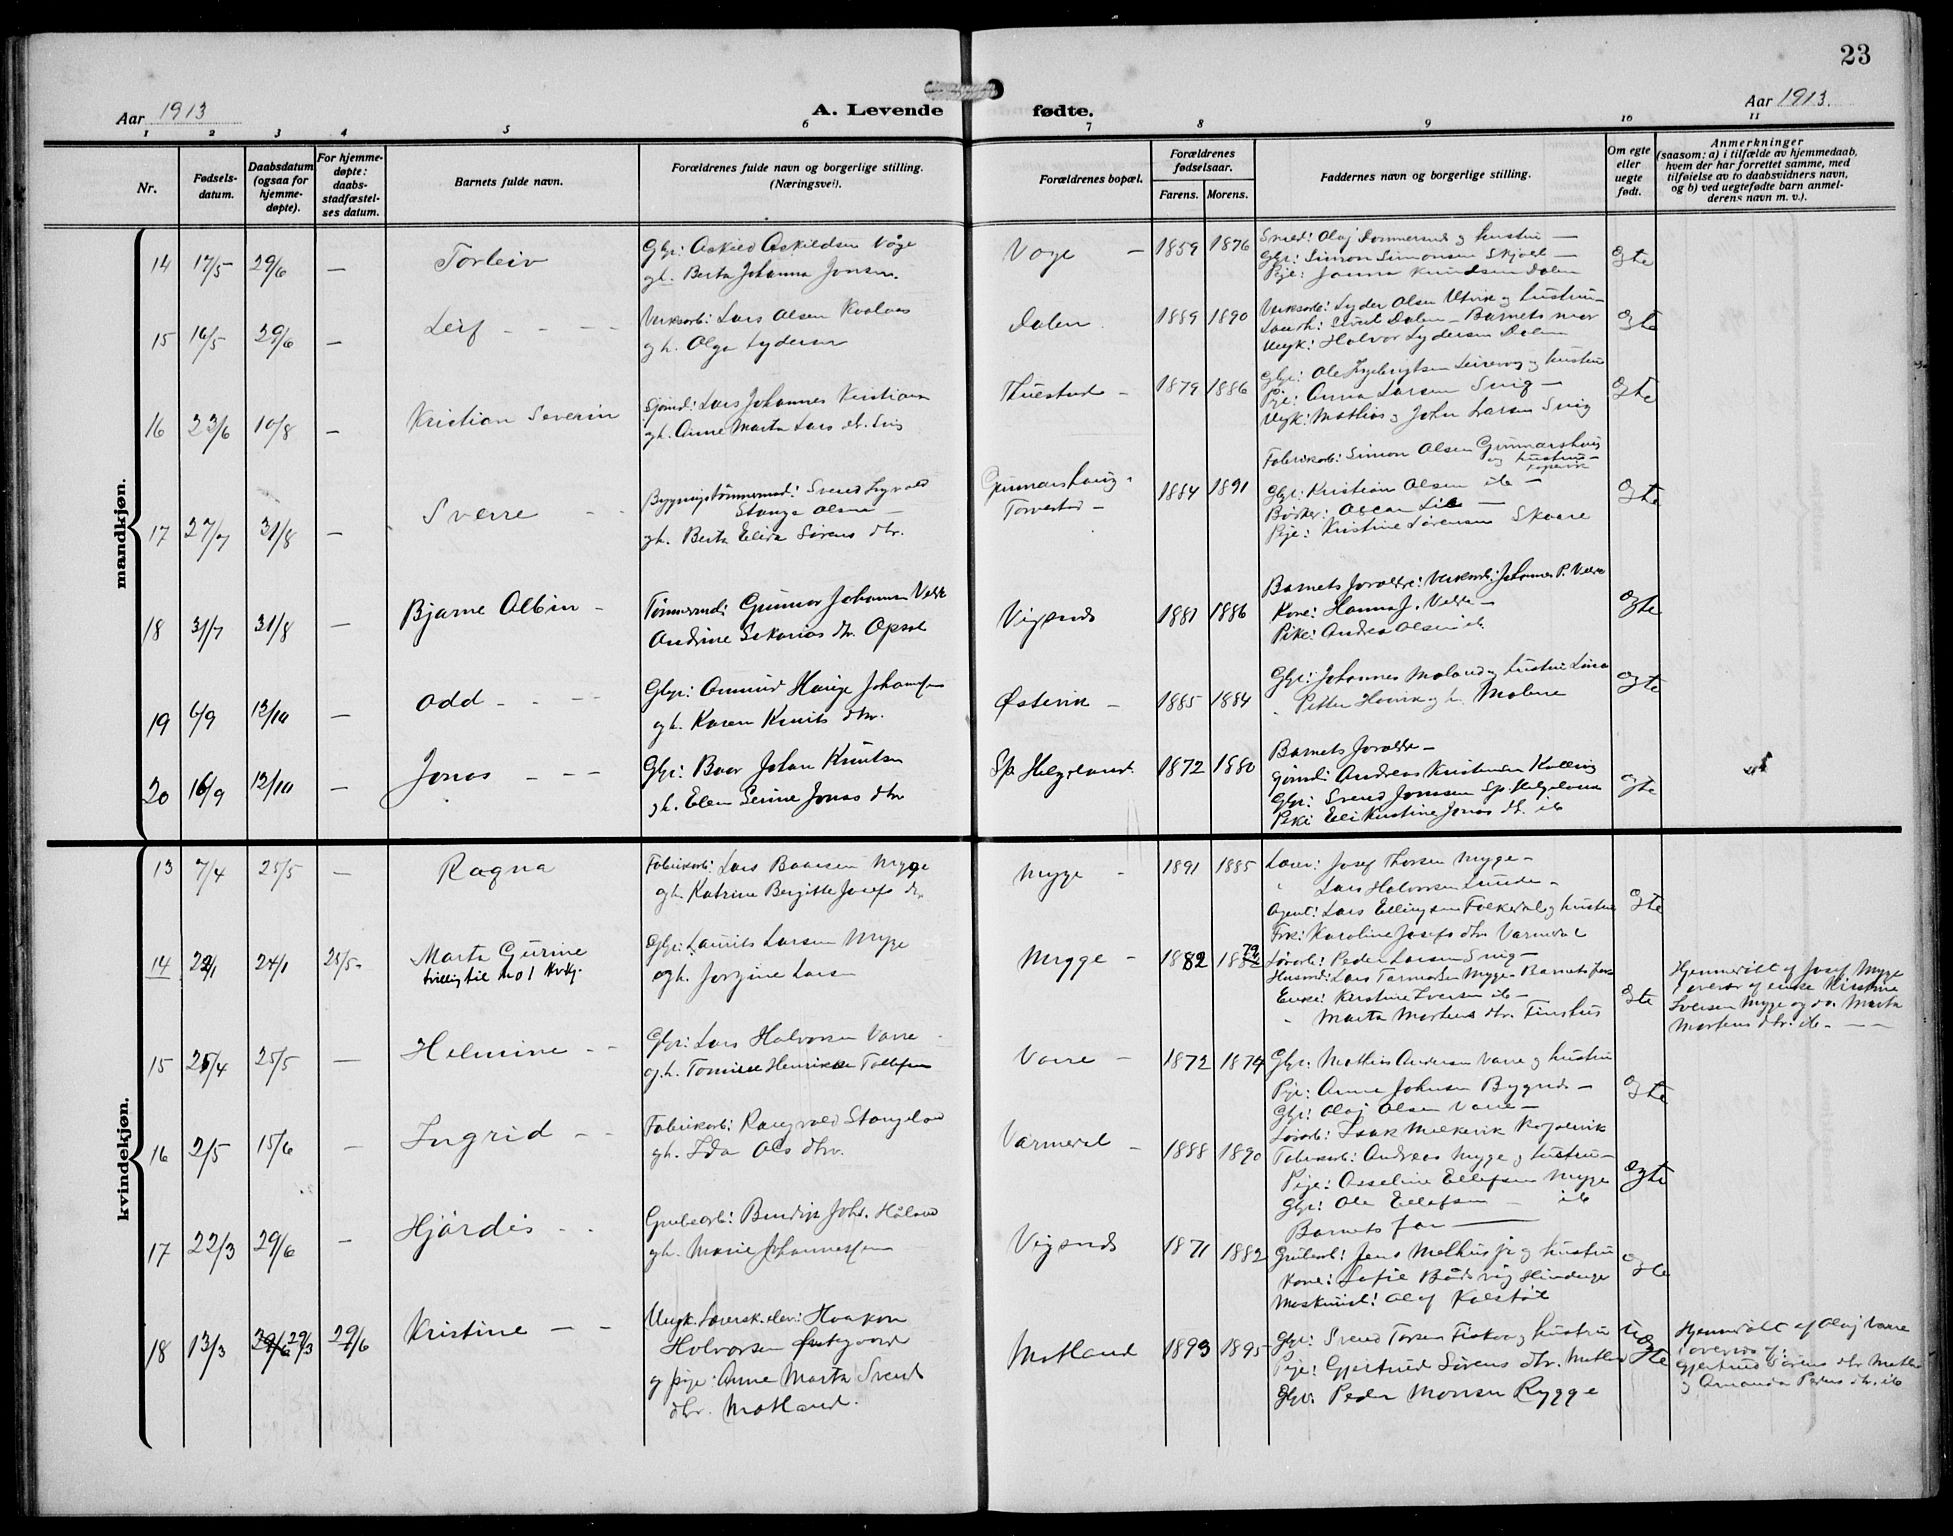 23
Aar 1913
A. Levende
fødte.
Aar 1913.
1 2 3 4 5 6 7 8 9 10 11
Nr.
Fødsels-
datum.
Daabsdatum
(ogsaa for
hjemme-
døpte).
For hjemme-
døpte:
daabs-
stadfæstel-
ses datum.
Barnets fulde navn.
Forældrenes fulde navn og borgerlige stilling.
(Næringsvei).
Forældrenes bopæl.
Forældrenes
fødselsaar.
Farens. Morens.
Faddernes navn og borgerlige stilling.
Om egte
eller
uegte
født.
Anmerkninger
(saasom: a) i tilfælde av hjemmedaab,
hvem der har forrettet samme, med
tilføielse av to daabsvidners navn,
og b) ved uegtefødte barn anmel-
derens navn m. v.).
mandkjøn.
14 17/5 29/6 — Torleiv
Gbr: Askild Askildsen Våge
gh. Berta Johanna Jonsen.
Vage — 1859 1876
Smed: Olaf Dommersnes og hustru —
Gbr: Simon Simonsen Skjoll —
Pige: Janna Knudsen Dalen
Egte
15 16/5 29/6 — Leif - - -
Verksarb: Lars Olsen Kvalvas
gh. Olga Lydersen
Dalen 1889 1890
Verksarb: Lyder Olsen Utvik og hustru —
Dalen — Barnets mor
Ungk: Halvor Lydersen Dalen
Egte
16 23/6 10/8 — Kristian Severin
Sjømd: Lars Johannes Kristiansen
gh. Anne Marta Lars dtr. Snig
Thuestad — 1879 1886
Gbr: Ole og hustru
Pige: Anna Larsen Snig —
Ungk: Mathias og John Larsen Snig
Egte
17 27/7 31/8 — Sverre - -
Bygningstømmermd: Svend
Stange Olsen —
gh. Berta Elida Sørens dtr.
Gunnarshaug
Torvestad — 1884 1891
Fabrikarb: Simon Olsen Gunnarshaug
og hustru —
Gbr: Kristian Olsen ib —
Bødker: Oscar Lie —
Pige: Kristine Sørensen Skaare
Egte
18 31/7 31/8 — Bjarne Albin -
Tømmermd: Gunnar Johansen Valde
Andrine Sakarias dtr. Opsal
Vigsnes 1881 1886
Barnets forældre: Verksarb: Johannes P. Valde
Kone: Hanna J. Valde —
Pike: Andrea Olsen ib.
Egte
19 6/9 12/10 — Odd - - - -
Gbr: Amund Hauge Johansen
gh. Karen Knuts dtr.
Østevik — 1885 1884
Gbr: Johannes Maland og hustru Lina
Petter Høivik og h. Malene
Egte
20 16/9 12/10 — Jonas - - -
Gbr: Baar Johan Knutsen
gh. Elen Serine Jonas dtr
Sp. Helgeland 1872 1880
Barnets forældre —
Gbr: Svend Jonssen Sp. Helgeland
Pike: Eli Kristine Jonas dtr. ib
Egte
kvindekjøn.
13 7/4 25/5 — Ragna
Fabrikarb: Lars Baarsen Mygge
gh. Katrine Bergitte Josefs dtr
Mygge — 1891 1885
Lærer: Josef Thorsen Mygge —
" Lars Halvorsen Lunde —
Agent: Lars Ellingsen Falkedal og hustru
Frk: Karoline Josefs dtr Varmedal
Egte
14 22/1 24/1 25/5 - Marta Gurine
tvilling til No 1 Kvkj.
Gbr: Laurits Larsen Mygge
og h. Jorgine Lars
Mygge — 1882 1879
Løsarb: Peder Larsen Snig —
Husmd: Lars Tarmodsen Mygge — Barnets far
Enke: Kirstine Iversen ib —
" Marta Mortens dtr. Finshus
Egte
Hjemmedøbt af Josef Mygge
i overvær af enke Kirstine
Iversen Mygge og do. Marta
Mortens dtr. ib — —
15 25/4 25/5 — Helmine - -
Gbr: Lars Halvorsen Varre
og h. Tomine Henrikke Tollefsen
Varre — 1872 1874
Gbr: Mathias Andersen Varre og hustru
Pige: Anna Johnsen Bygnes —
Gbr: Olaf Olsen Varre —
Løsarb: Isak
Egte
16 2/5 15/6 - Ingrid - -
Fabrikarb: Rangvald Stangeland
gh. Ida Ols dtr.
Varmedal — 1888 1890
Fabrikarb: Andreas Mygge og hustru —
Pige: Asseline Ellefsen Mygge
Gbr: Ole Ellefsen — ib
Barnets far —
Egte
17 22/3 29/6 — Hjørdis - -
Grubearb: Bendix Joh. Håland
gh. Marie Johannessen
Vigsnes 1871 1882
Grubearb: Jens Melhus jr og hustru
Kone: Sofie Bådsvig Hinderaker
Maskinist: Olaf Kolstø
Egte
18 13/3 29/6 29/3 29/6 Kristine - -
Ungk. Lærersk. elev: Haakon
Halvorsen Østgaard
og pige: Anne Marta Svends
dtr. Matland.
Matland 1893 1895
Gbr: Svend Torsen Fiskaa og hustru
Pige: Gjertrud Sørens dtr. Matland
Gbr: Peder Monsen Rygge
Uegte
Hjemmedøbt af Olaf Varre
i overvær af:
Gjertrud Sørens dtr Matland
og Amanda Peders dtr. ib